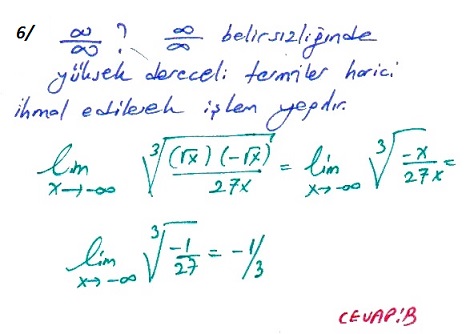 6/ ∞/∞ ? ∞/∞ belirsizliğinde
yüksek dereceli terimler harici
ihmal edilerek işlem yapılır.
lim x→-∞ ∛((√x)(-√x)/27x) = lim x→-∞ ∛(-x/27x) =
lim x→-∞ ∛(-1/27) = -1/3
CEVAP:B